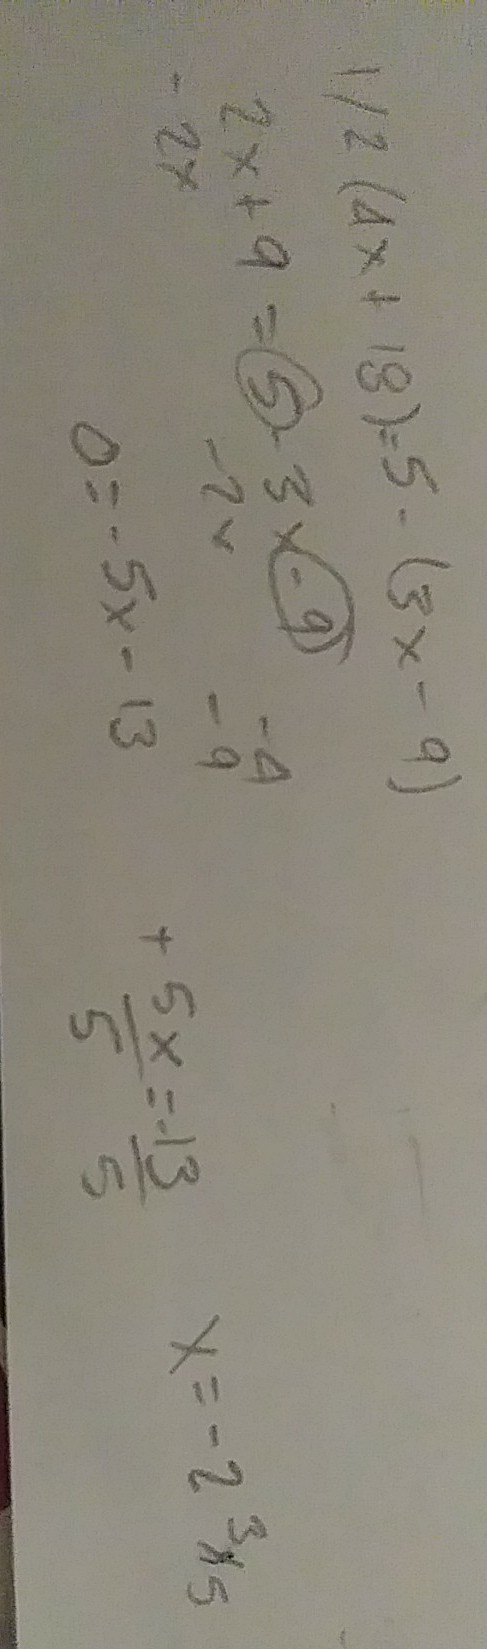 1/2 (4x + 18) = 5 - (3x - 9)
2x + 9 = 5 - 3x - 9
-2x -2x -4
-9
0 = -5x - 13
+ 5x = -13
5 5
x = -2 3/5